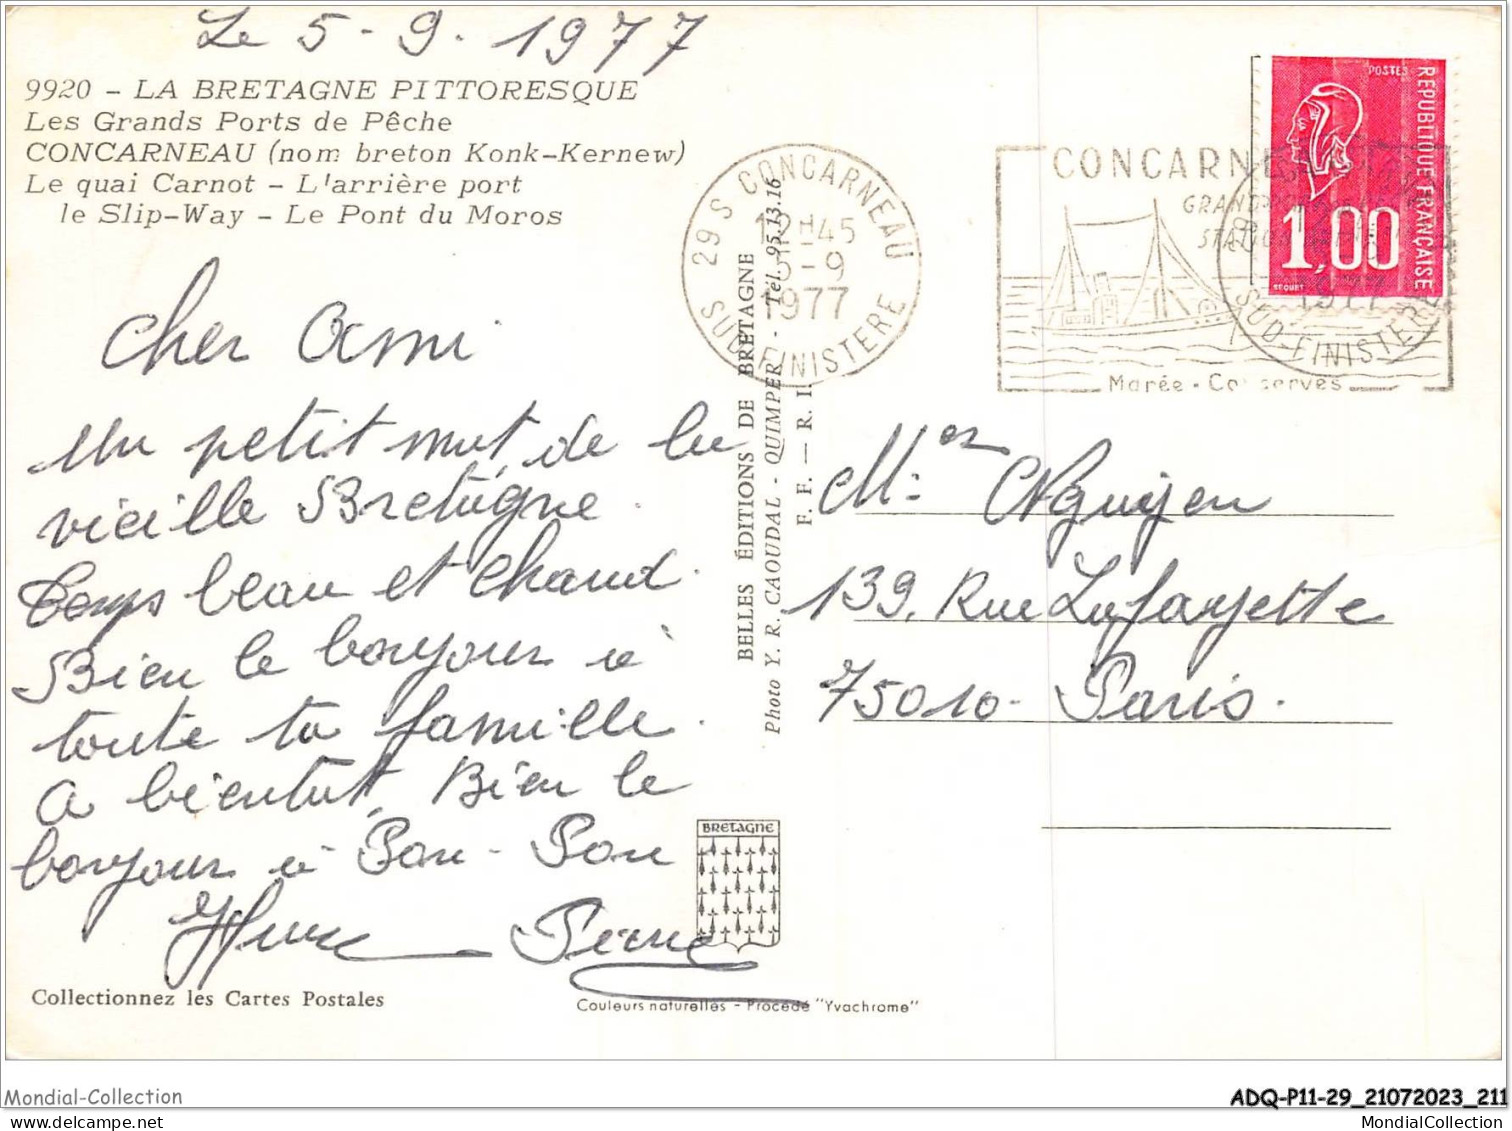 Le 5-9.1977
9920 - LA BRETAGNE PITTORESQUE
Les Grands Ports de Pêche
CONCARNEAU (nom breton Konk-Kernew)
Le quai Carnot - L'arrière port
le Slip-Way - Le Pont du Moros
Cher Ami
Un petit mot de la
vieille Bretagne.
Temps beau et chaud.
Bien le bonjour à
toute ta famille.
A bientot, Bien le
bonjour à Pou-Pou
Pierre
Collectionnez les Cartes Postales
BELLES ÉDITIONS DE BRETAGNE
Photo Y. R. CAOUDAL - QUIMPER - Tél. 95.13.16
F. F. — R. I.
BRETAGNE
Couleurs naturelles - Procédé "Yvachrome"
29 S CONCARNEAU
12H45
5-9
1977
SUD-FINISTERE
CONCARNE
GRAND
STATION
Marée - Conserves
SUD-FINISTERE
1977
POSTES
REPUBLIQUE FRANÇAISE
1,00
BEQUET
Mr Nguyen
139, Rue Lafayette
75010 - Paris.
Mondial-Collection
ADQ-P11-29_21072023_211
MondialCollection